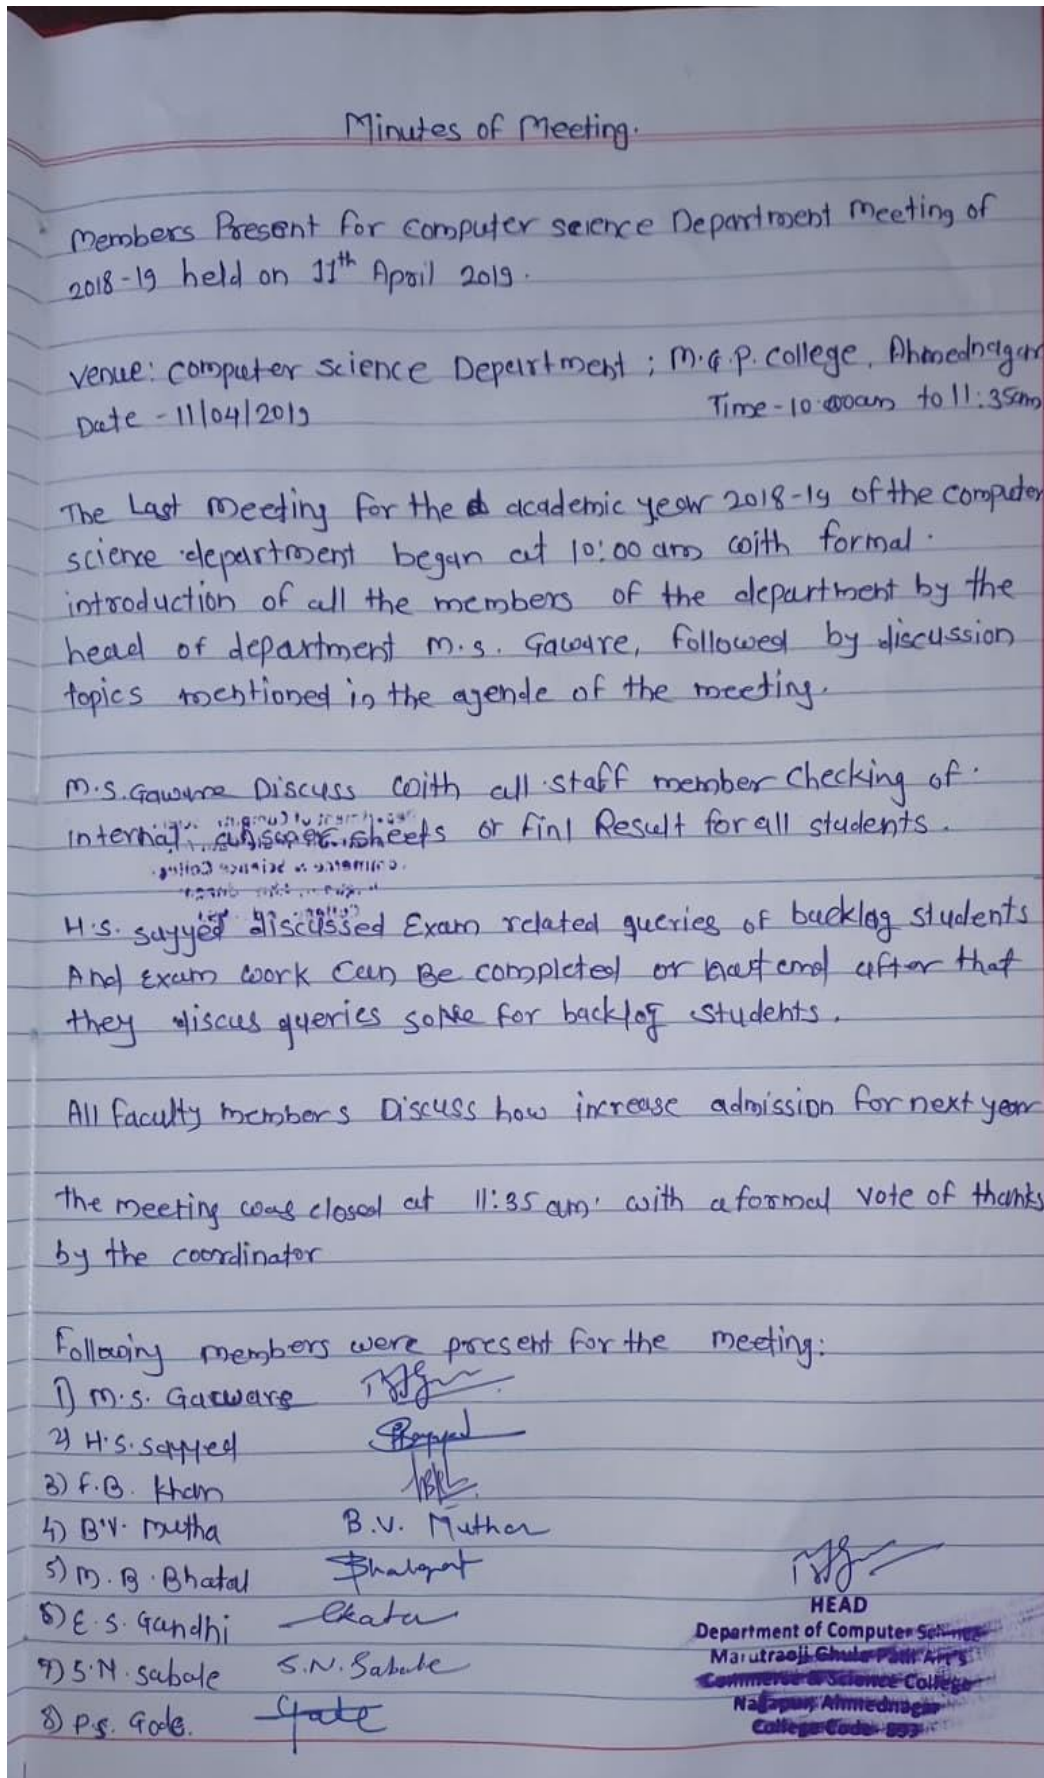 Minutes of Meeting.
Members Present for computer science Department meeting of
2018-19 held on 11th April 2019.
Venue: Computer Science Department; M.G.P. College, Ahmednagar
Time - 10:00am to 11:35am
Date - 11/04/2019
The Last meeting for the academic year 2018-19 of the computer
science department began at 10:00 am with formal.
introduction of all the members of the department by the
head of department M.S. Gaware, followed by discussion
topics mentioned in the agende of the meeting.
M.S. Gaware Discuss with all staff member checking of
internal answer sheets or finl Result for all students.
H.S. sayyed discussed Exam related queries of backlog students
And Exam work Can Be completed or after that
they discus queries solve for backlog students.
All faculty members Discuss how increase admission for next year
the meeting was closed at 11:35 am. with a formal vote of thanks
by the coordinator
Following members were present for the meeting:
1) M.S. Gaware
2) H.S. Sayyed
3) F.B. Khan
4) B.V. Mutha B.V. Mutha
5) M.B. Bhatal
6) E.S. Gandhi Ekata
7) S.N. Sabale S.N. Sabale
8) P.S. Gode.
HEAD
Department of Computer Science
Marutraoji Ghule Patil Art's
Commerce & Science College
Nagapur, Ahmednagar
College Code- 893